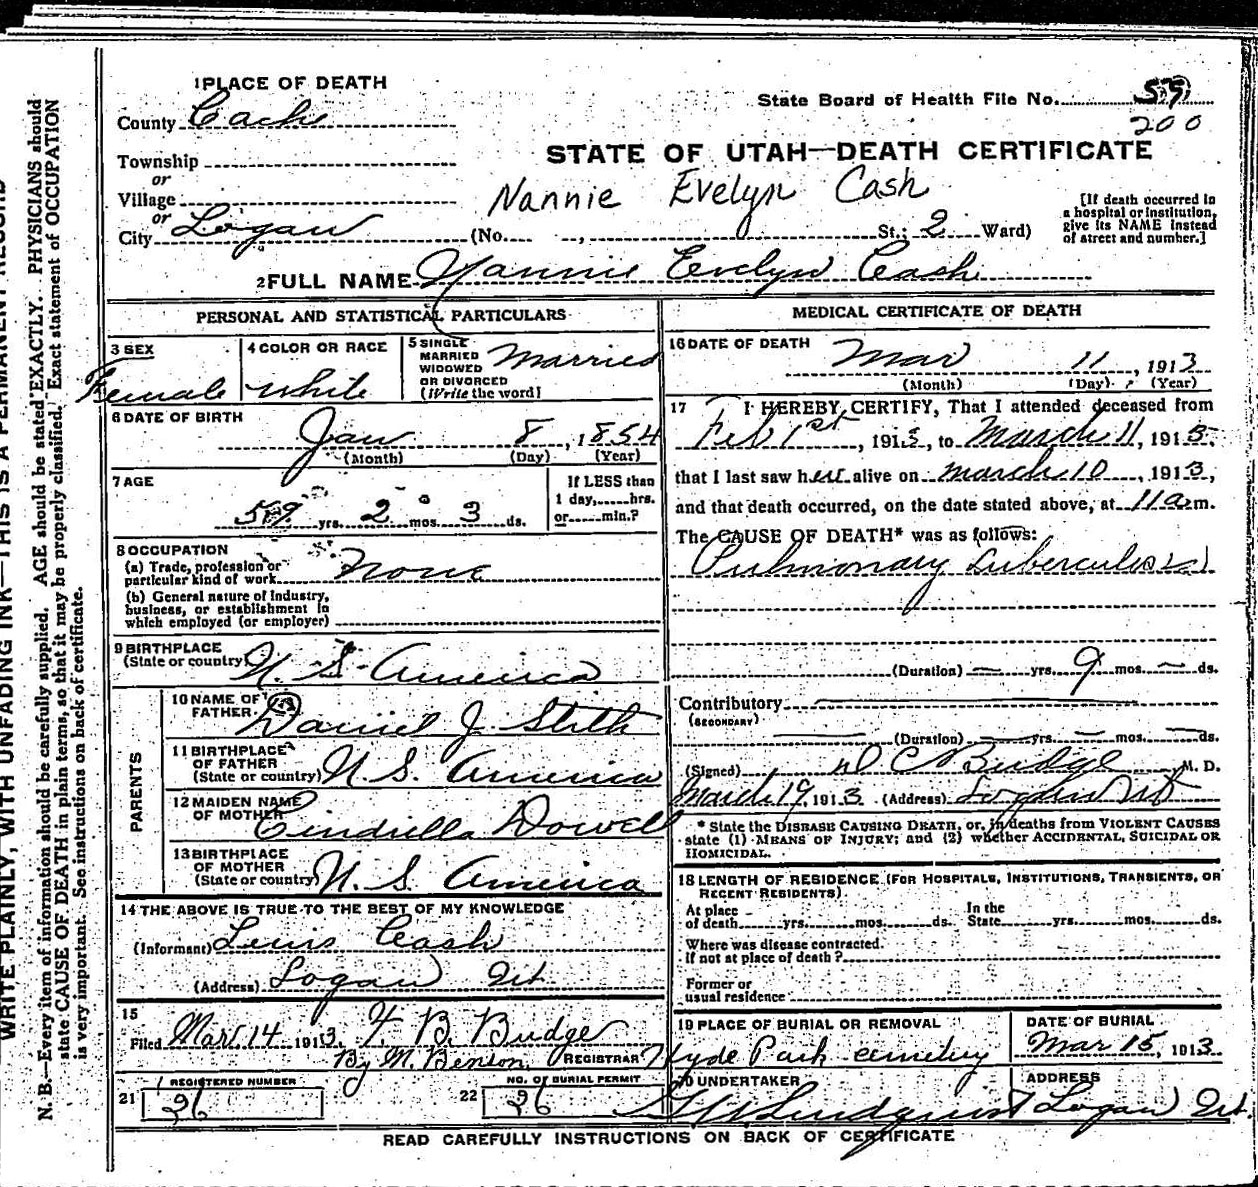 1 PLACE OF DEATH
County Cache
State Board of Health File No. 59
200
Township
or
Village
or
City Logan
STATE OF UTAH—DEATH CERTIFICATE
Nannie Evelyn Cash
(No. , St.; 2 Ward)
[If death occurred in
a hospital or institution,
give its NAME instead
of street and number.]
2 FULL NAME Nannie Evelyn Cash
PERSONAL AND STATISTICAL PARTICULARS
3 SEX
Female
4 COLOR OR RACE
white
5 SINGLE
MARRIED
WIDOWED
OR DIVORCED
(Write the word)
Married
6 DATE OF BIRTH
Jan 8, 1854
(Month) (Day) (Year)
7 AGE
59 yrs. 2 mos. 3 ds.
If LESS than
1 day, hrs.
or min.?
8 OCCUPATION
(a) Trade, profession or
particular kind of work None
(b) General nature of industry,
business, or establishment in
which employed (or employer)
9 BIRTHPLACE
(State or country) U. S. America
PARENTS
10 NAME OF
FATHER Daniel J Stith
11 BIRTHPLACE
OF FATHER
(State or country) U S. America
12 MAIDEN NAME
OF MOTHER Cindrella Dowell
13 BIRTHPLACE
OF MOTHER
(State or country) U. S. America
14 THE ABOVE IS TRUE TO THE BEST OF MY KNOWLEDGE
(Informant) Lewis Cash
(Address) Logan Ut.
15
Filed Mar. 14 1913. F. B. Budge
By M. Benson. REGISTRAR
21 REGISTERED NUMBER
26
22 NO. OF BURIAL PERMIT
26
MEDICAL CERTIFICATE OF DEATH
16 DATE OF DEATH
Mar 11, 1913
(Month) (Day) (Year)
17 I HEREBY CERTIFY, That I attended deceased from
Feb 1st, 1913, to March 11, 1913.
that I last saw her alive on March 10, 1913,
and that death occurred, on the date stated above, at 11 a m.
The CAUSE OF DEATH* was as follows:
Pulmonary Tuberculosis
(Duration) — yrs. 9 mos. — ds.
Contributory
(SECONDARY)
(Duration) — yrs. — mos. — ds.
(Signed) D C Budge M. D.
March 19, 1913 (Address) Logan Ut
* State the DISEASE CAUSING DEATH, or, in deaths from VIOLENT CAUSES
state (1) MEANS OF INJURY; and (2) whether ACCIDENTAL, SUICIDAL OR
HOMICIDAL.
18 LENGTH OF RESIDENCE (FOR HOSPITALS, INSTITUTIONS, TRANSIENTS, OR
RECENT RESIDENTS)
At place
of death yrs. mos. ds. In the
State yrs. mos. ds.
Where was disease contracted.
If not at place of death?
Former or
usual residence
19 PLACE OF BURIAL OR REMOVAL
Hyde Park cemetery
DATE OF BURIAL
Mar 15, 1913
20 UNDERTAKER
Lindquist
ADDRESS
Logan Ut.
READ CAREFULLY INSTRUCTIONS ON BACK OF CERTIFICATE
WRITE PLAINLY, WITH UNFADING INK—THIS IS A PERMANENT RECORD
N. B.—Every item of information should be carefully supplied. AGE should be stated EXACTLY. PHYSICIANS should
state CAUSE OF DEATH in plain terms, so that it may be properly classified. Exact statement of OCCUPATION
is very important. See instructions on back of certificate.